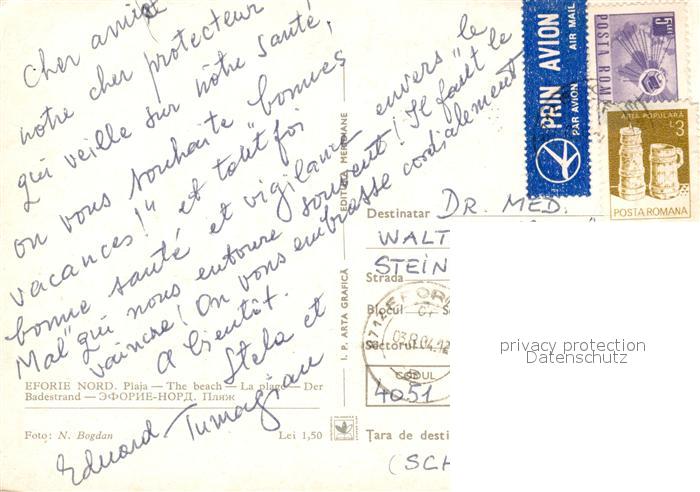 Cher ami
notre cher protecteur
qui veille sur nôtre santé,
on vous souhaite bonnes
vacances!" et tout foi
bonne santé et vigilance envers "le
Mal" qui nous entoure souvent! Il faut le
vaincre! On vous embrasse cordialement
A bientôt.
Stela et
Eduard Tumagian
EFORIE NORD. Plaja — The beach — La plage — Der
Badestrand — ЭФОРИЕ-НОРД. Пляж
Foto: N. Bogdan
Lei 1,50
I. P. ARTA GRAFICĂ
EDITURA MERIDIANE
PRIN AVION
PAR AVION
AIR MAIL
5 LEI
POSTA ROM
ARTA POPULARĂ
L3
POSTA ROMANA
Destinatar DR. MED.
WALT
STEIN
Strada
Blocul
Sectorul
CODUL
4051
Țara de desti
(SCH
EFORI
privacy protection
Datenschutz